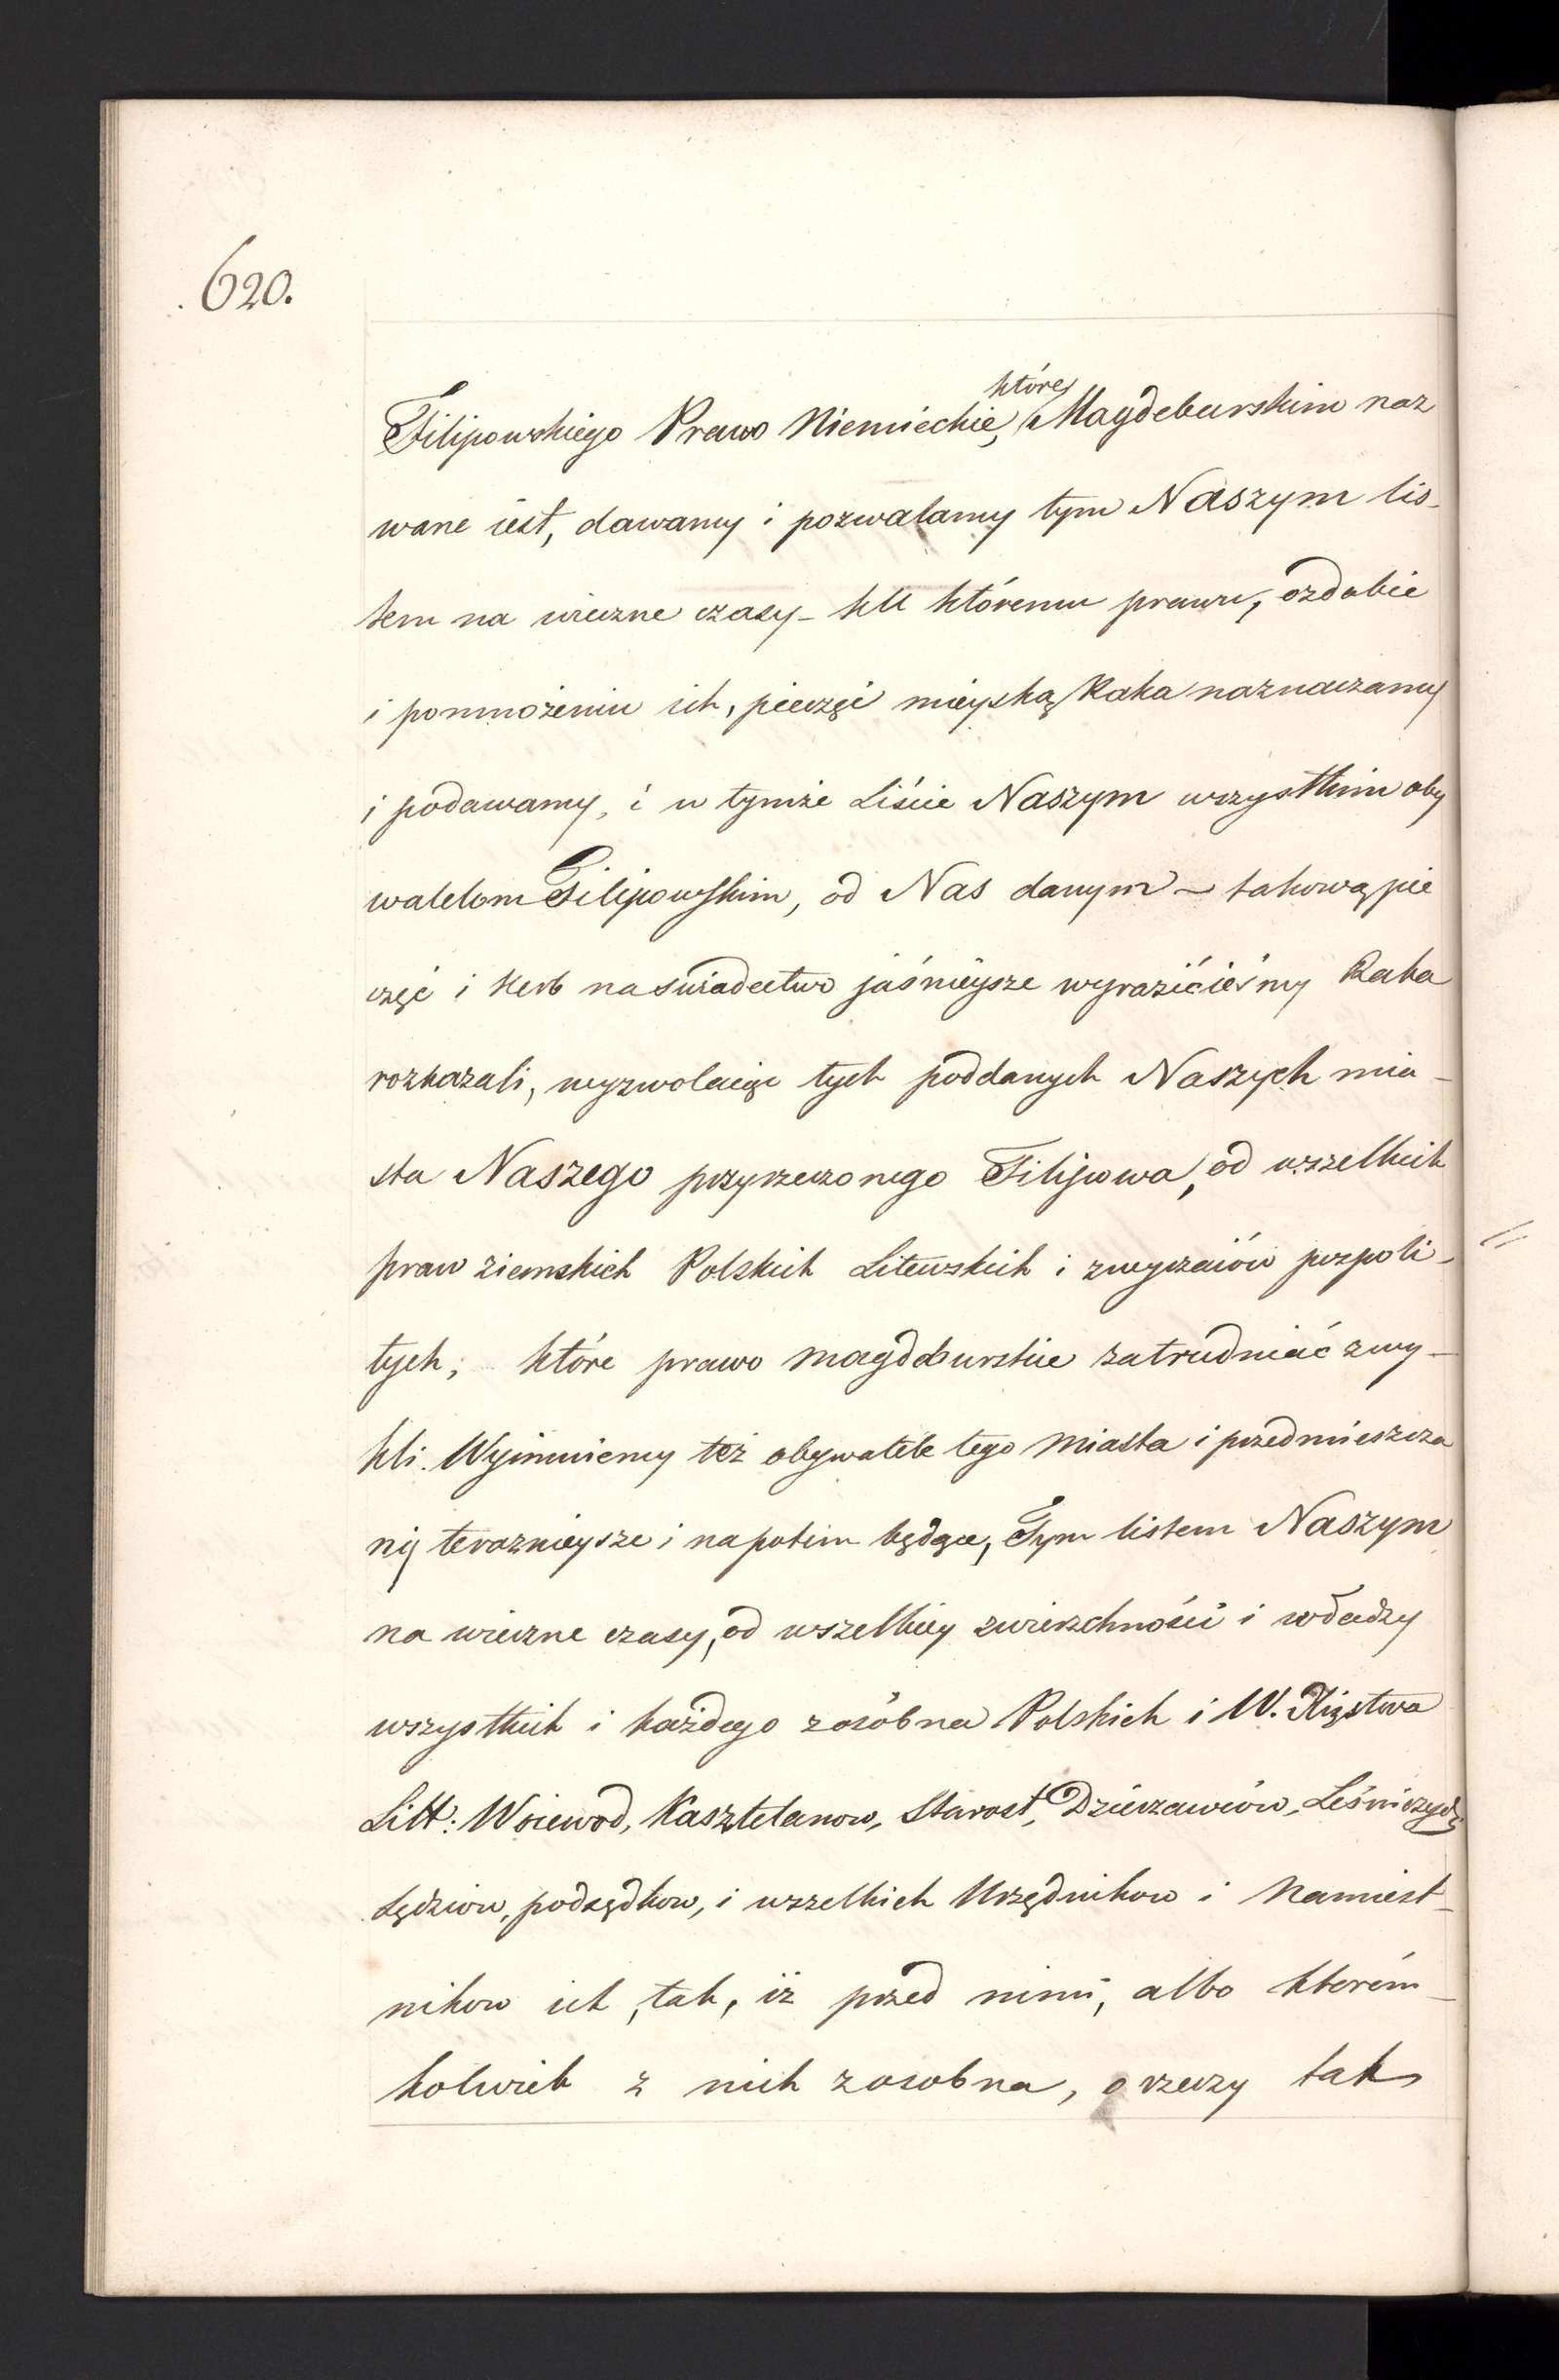 620.
które
Filipowskiego Prawo Niemieckie, Magdeburskim naz
wane iest, dawamy i pozwalamy tym Naszym lis-
tem na wieczne czasy - ku któremu prawu, ozdobie
i pomnożeniu ich, pieczęć mieyską Raka naznaczamy
i podawamy, i w tymże Liście Naszym wszystkim oby
watelom Filipowskim, od Nas danym - takową pie
częć i Herb na świadectwo jaśnieysze wyrazićieśmy Raka
rozkazali, wyzwolaiąc tych poddanych Naszych mia-
sta Naszego przyrzeczonego Filipowa, od wszelkich
praw ziemskich Polskich Litewskich i zwyczaiów pospoli-
tych, które prawo magdeburskie zatrudniać zwy-
kli. Wyimuiemy też obywatele tego Miasta i przedmieszcza
ny teraznieysze i napotim będące, Tym listem Naszym
na wieczne czasy, od wszelkiey zwierzchności i władzy
wszystkich i każdego zosóbna Polskich i W. Xięstwa
Litt: Woiewod, Kasztelanow, Starost, Dzierzawców, Leśniczych,
Sędziow, podsędkow, i wszelkich Urzędnikow i Namiest-
nikow ich, tak, iż przed nimi, albo którém-
kolwiek z nich zosobna, o rzeczy tak